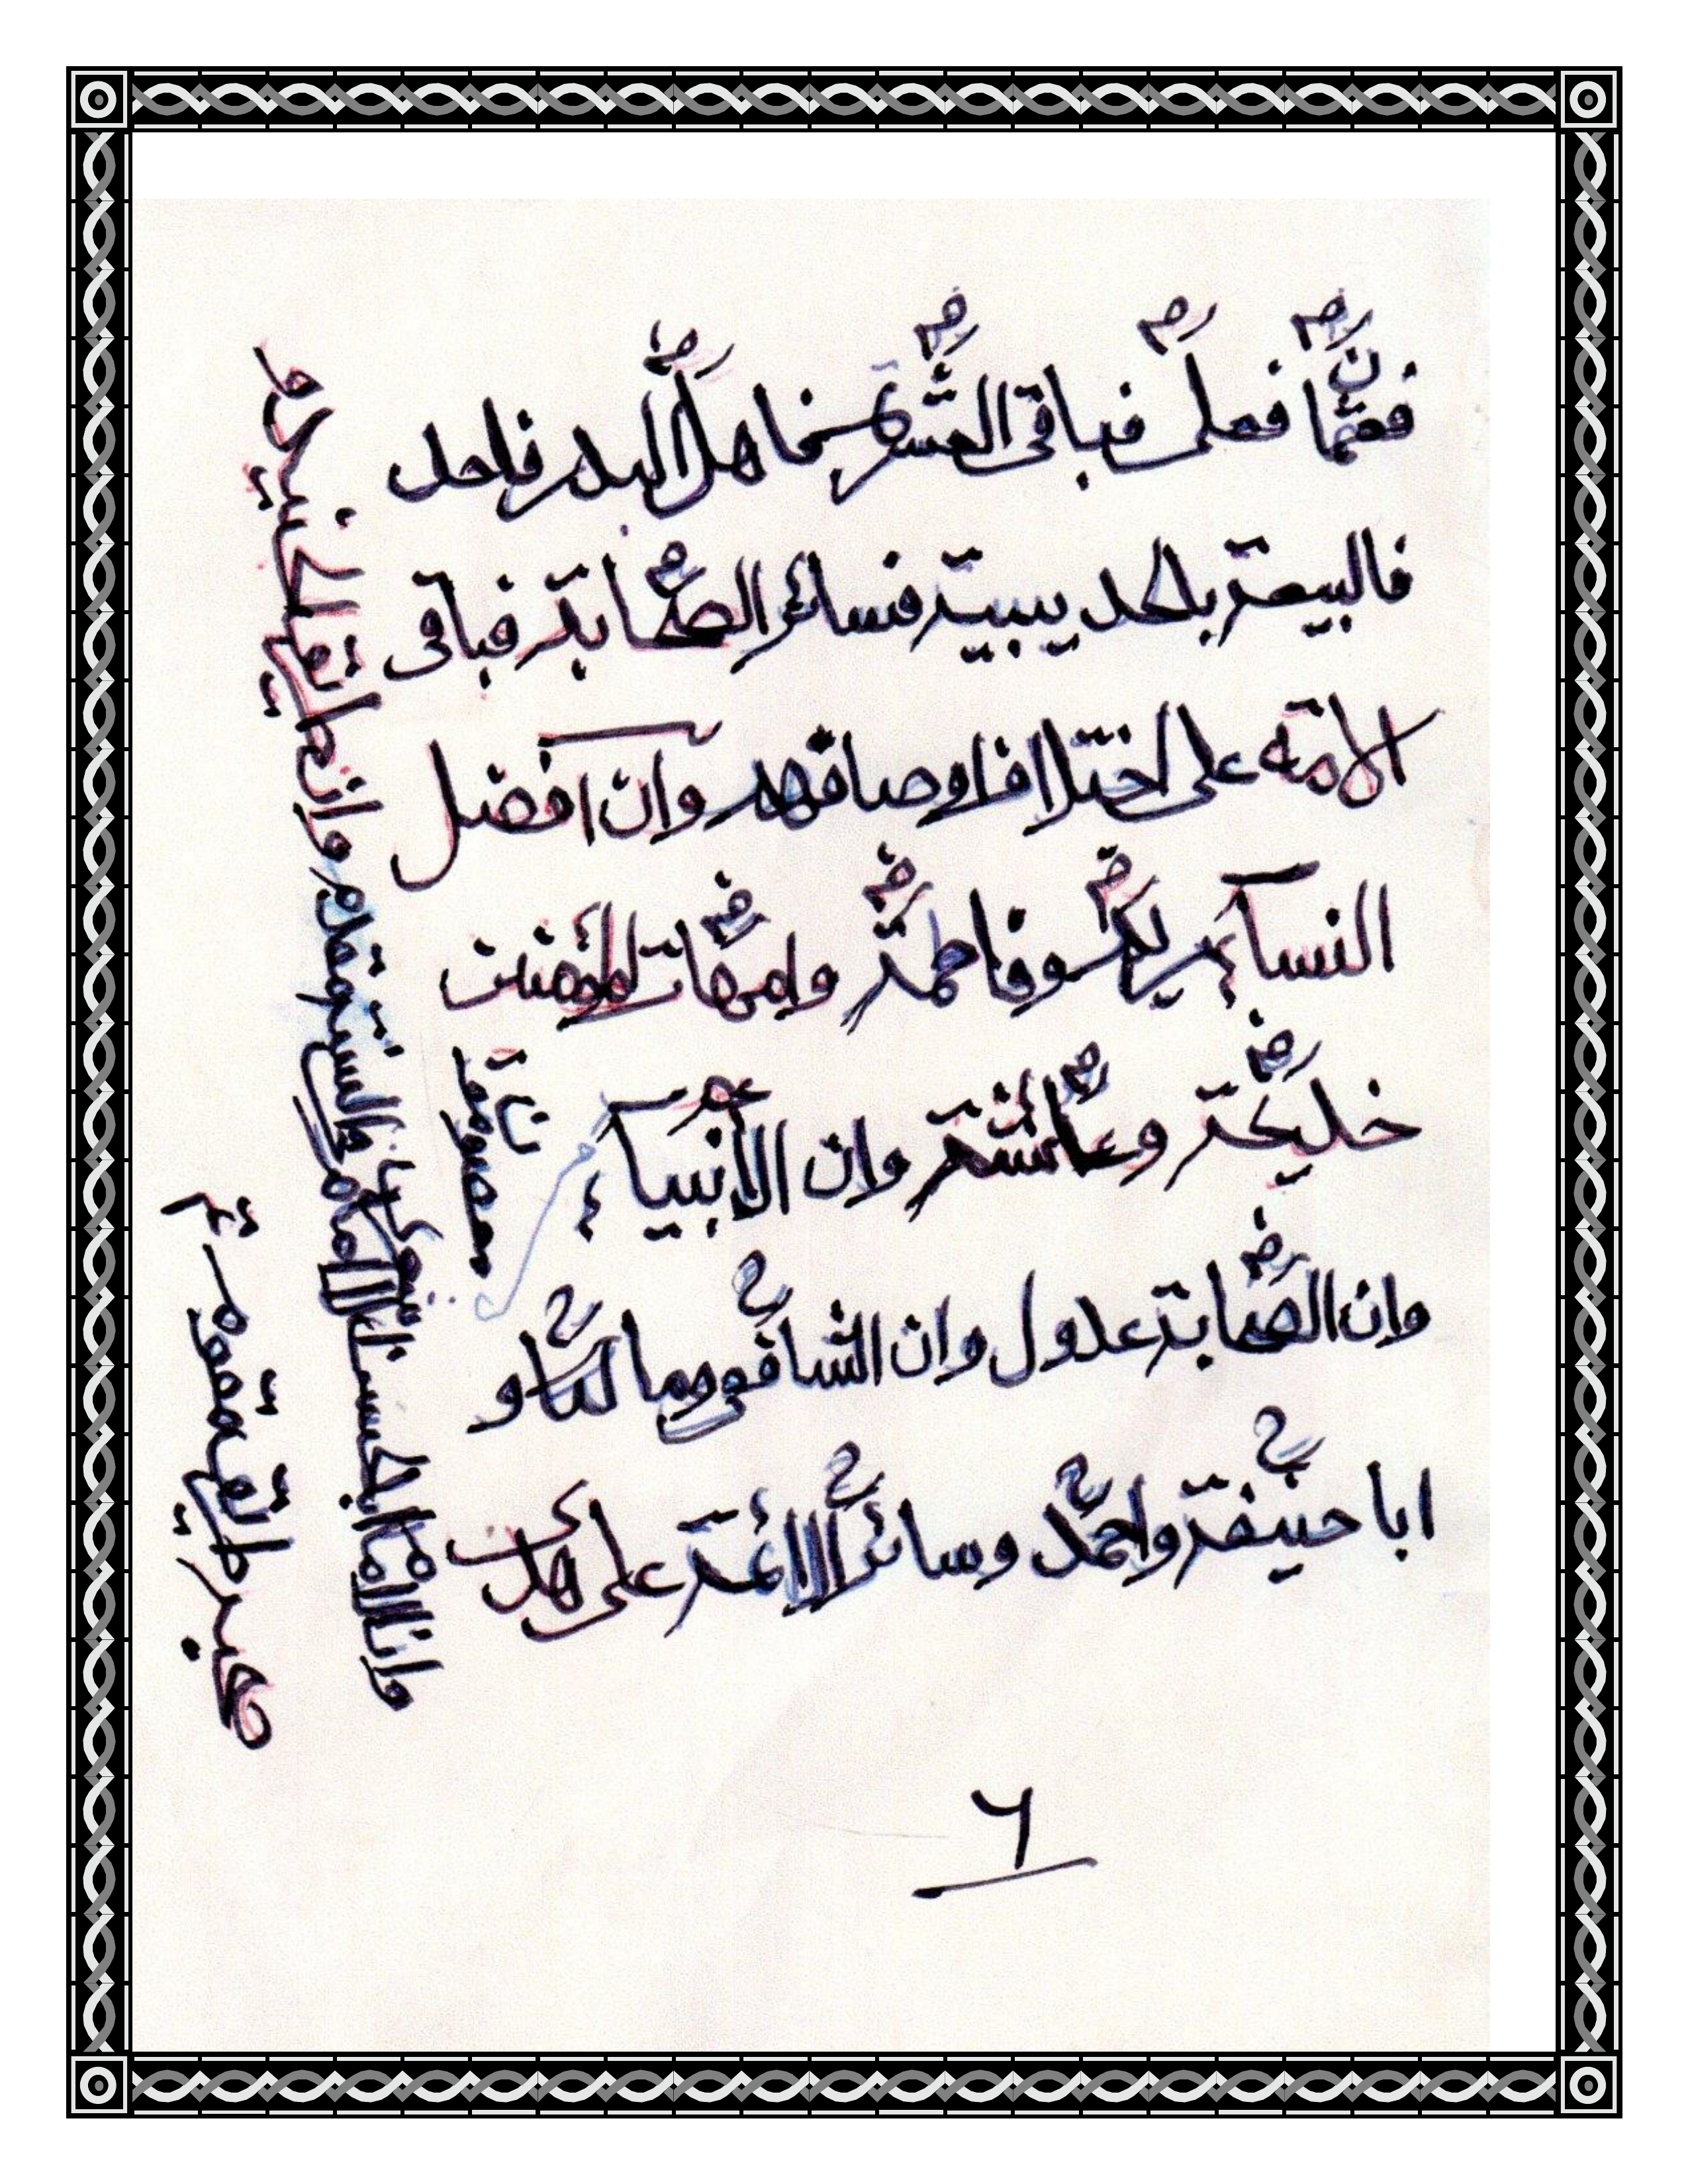 فعثمان فعلى فباقى العشرة فاهل البدر فاحد
فالبيعة بالحديبية فسائر الصحابة فباقى
الامة على اختلاف اوصافهم وان افضل
النساء مريم وفاطمة وامهات المؤمنين
خديجة وعائشة وان الأنبياء
معصومون
وان الصحابة عدول وان الشافعى ومالكا و
ابا حنيفة واحمد وسائر الائمة على هدى
وان الامام ابا الحسن الاشعرى امام فى السنة مقدم وان طريقة الجنيد و
صحبه طريق مقوم
٦